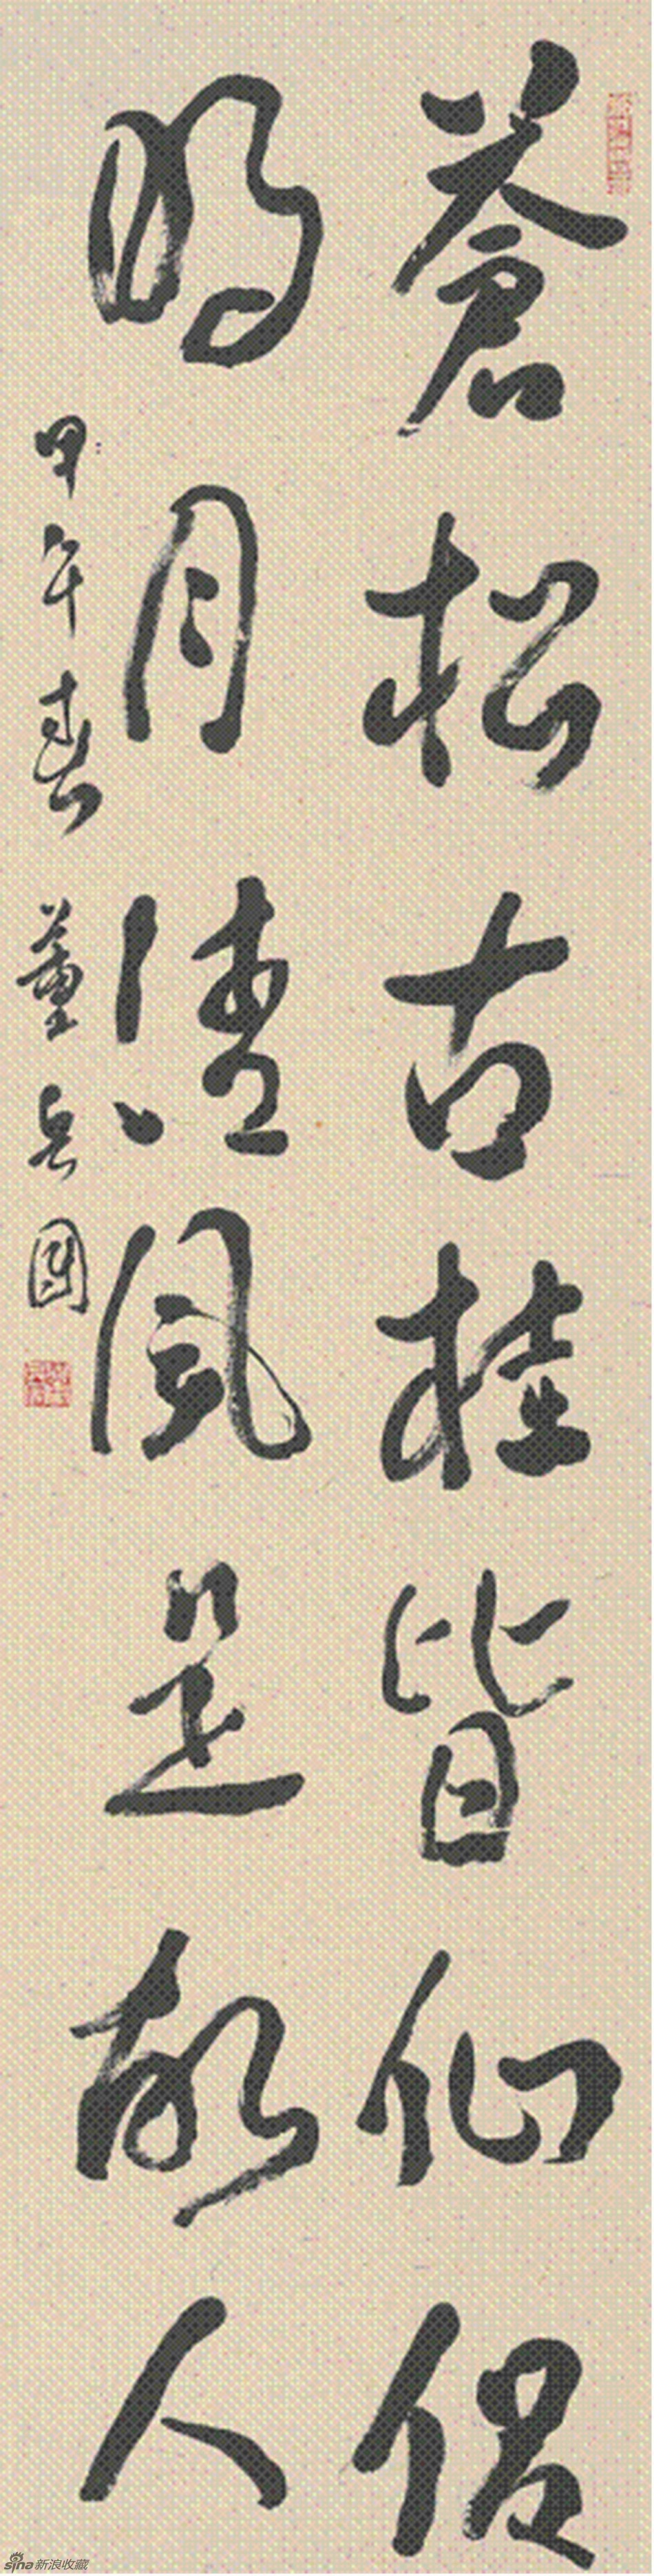 蒼松古桂皆仙侣
明月清風是故人
甲午春 董兵國
sina 新浪收藏